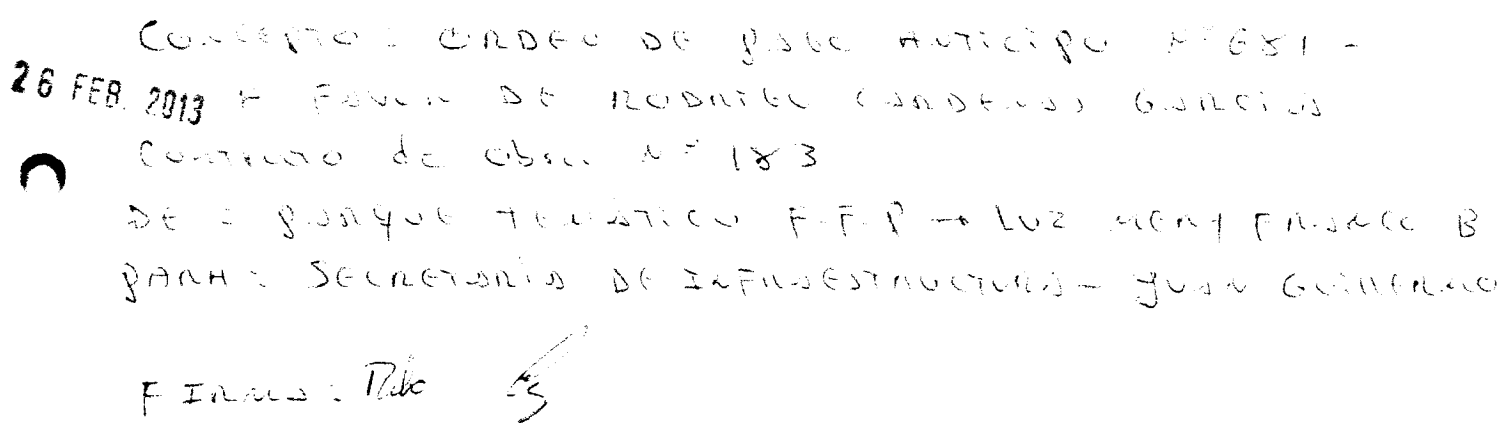 Concepto : ORDEN DE pago ANTICIPO N° 681 -
26 FEB. 2013
A FAVOR DE RODRIGO CARDENAS GARCIA
Contrato de obra N° 183
DE : PARQUE TEMATICO F.F.P → LUZ MERY FRANCO B
PARA : SECRETARIA DE INFRAESTRUCTURA - JUAN GUILLERMO
FIRMA :